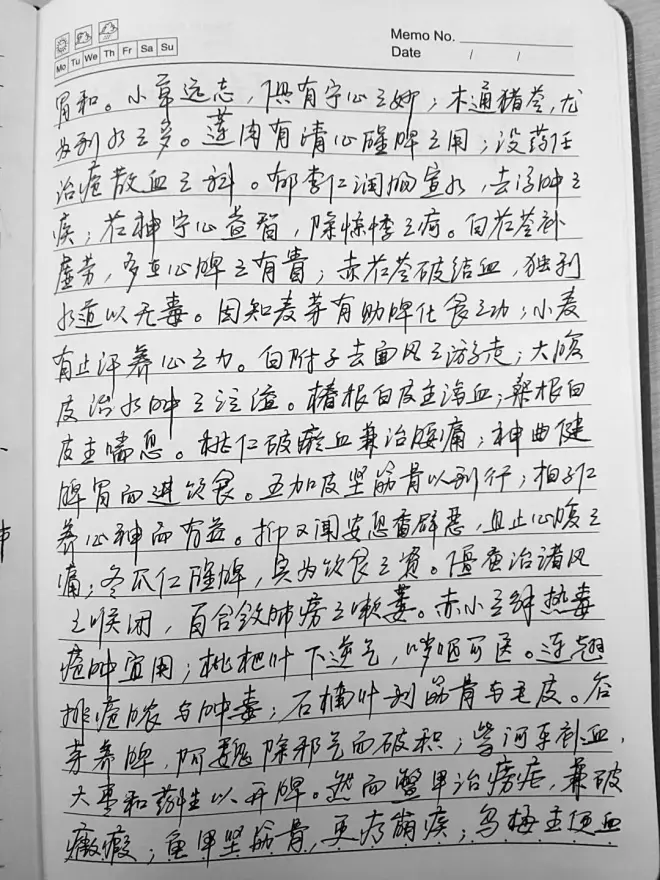 Memo No.
Date / /
Mo Tu We Th Fr Sa Su
胃和。小草远志，俱有宁心之妙；木通猪苓，尤
为利水之多。莲肉有清心醒脾之用；没药任
治疮散血之科。郁李仁润肠宣水，去浮肿之
疾；茯神宁心益智，除惊悸之疴。白茯苓补
虚劳，多在心脾之有眚；赤茯苓破结血，独利
水道以无毒。因知麦芽有助脾化食之功；小麦
有止汗养心之力。白附子去面风之游走；大腹
皮治水肿之泛溢。椿根白皮主泻血；桑根白
皮主喘息。桃仁破瘀血兼治腰痛；神曲健
脾胃而进饮食。五加皮坚筋骨以利行；柏子仁
养心神而有益。抑又闻安息香辟恶，且止心腹之
痛；冬瓜仁醒脾，实为饮食之资。僵蚕治诸风
之喉闭，百合敛肺痨之嗽萎。赤小豆解热毒
疮肿宜用；枇杷叶下逆气，哕呕可医。连翘
排疮脓与肿毒；石楠叶利筋骨与毛皮。谷
芽养脾，阿魏除邪气而破积；紫河车补血，
大枣和药性以开脾。然而鳖甲治痨疟，兼破
癥瘕；龟甲坚筋骨，更疗崩疾；乌梅主便血